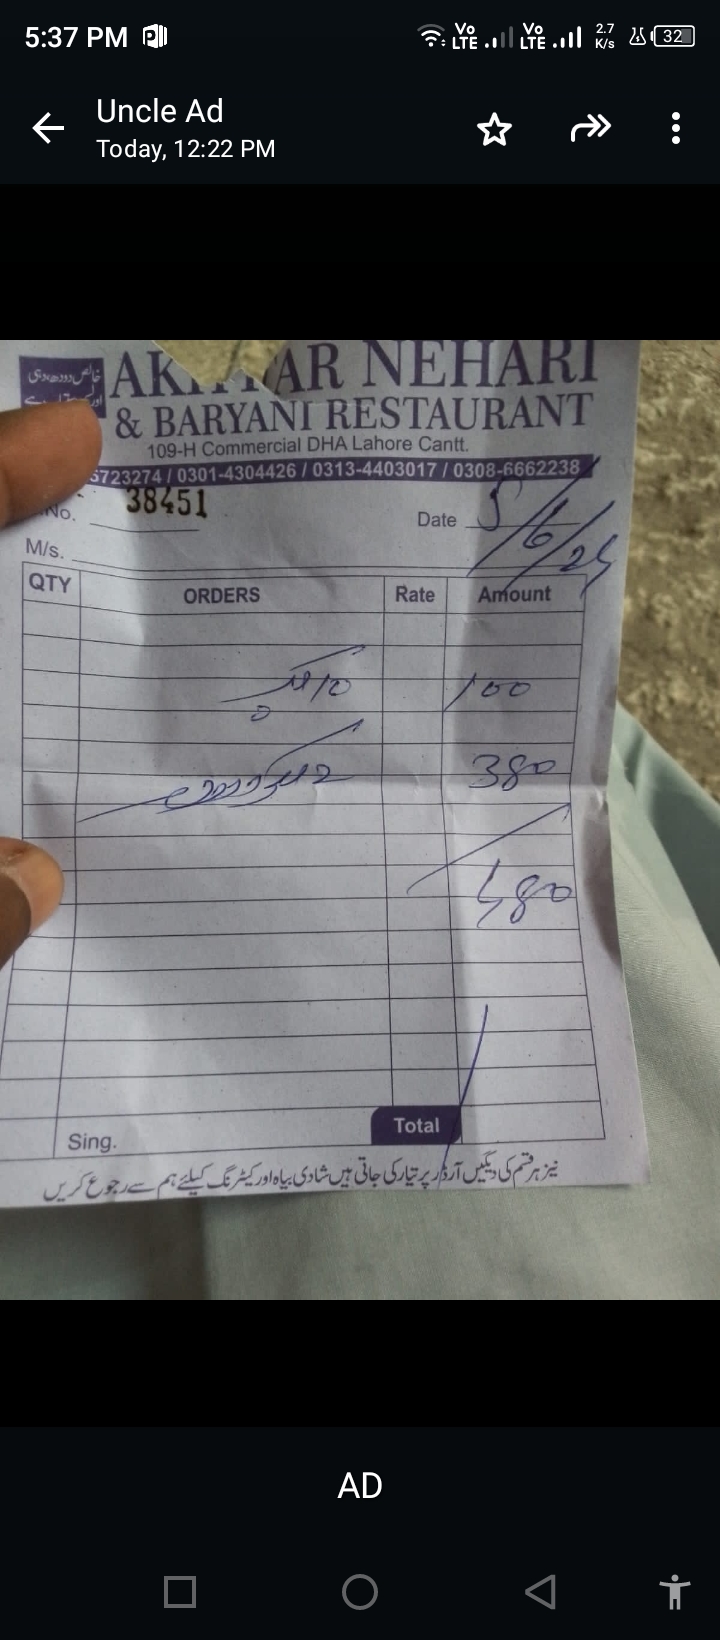 5:37 PM
Vo LTE Vo LTE 2.7 K/s 32
Uncle Ad
Today, 12:22 PM
خالص دودھ دہی
NEHARI
& BARYANI RESTAURANT
109-H Commercial DHA Lahore Cantt.
5723274 / 0301-4304426 / 0313-4403017 / 0308-6662238
No. 38451
Date 5/6/25
M/s.
QTY ORDERS Rate Amount
100
380
480
Total
Sing.
نیز ہر قسم کی دیگیں آرڈر پر تیار کی جاتی ہیں شادی بیاہ اور کیٹرنگ کیلئے ہم سے رجوع کریں
AD